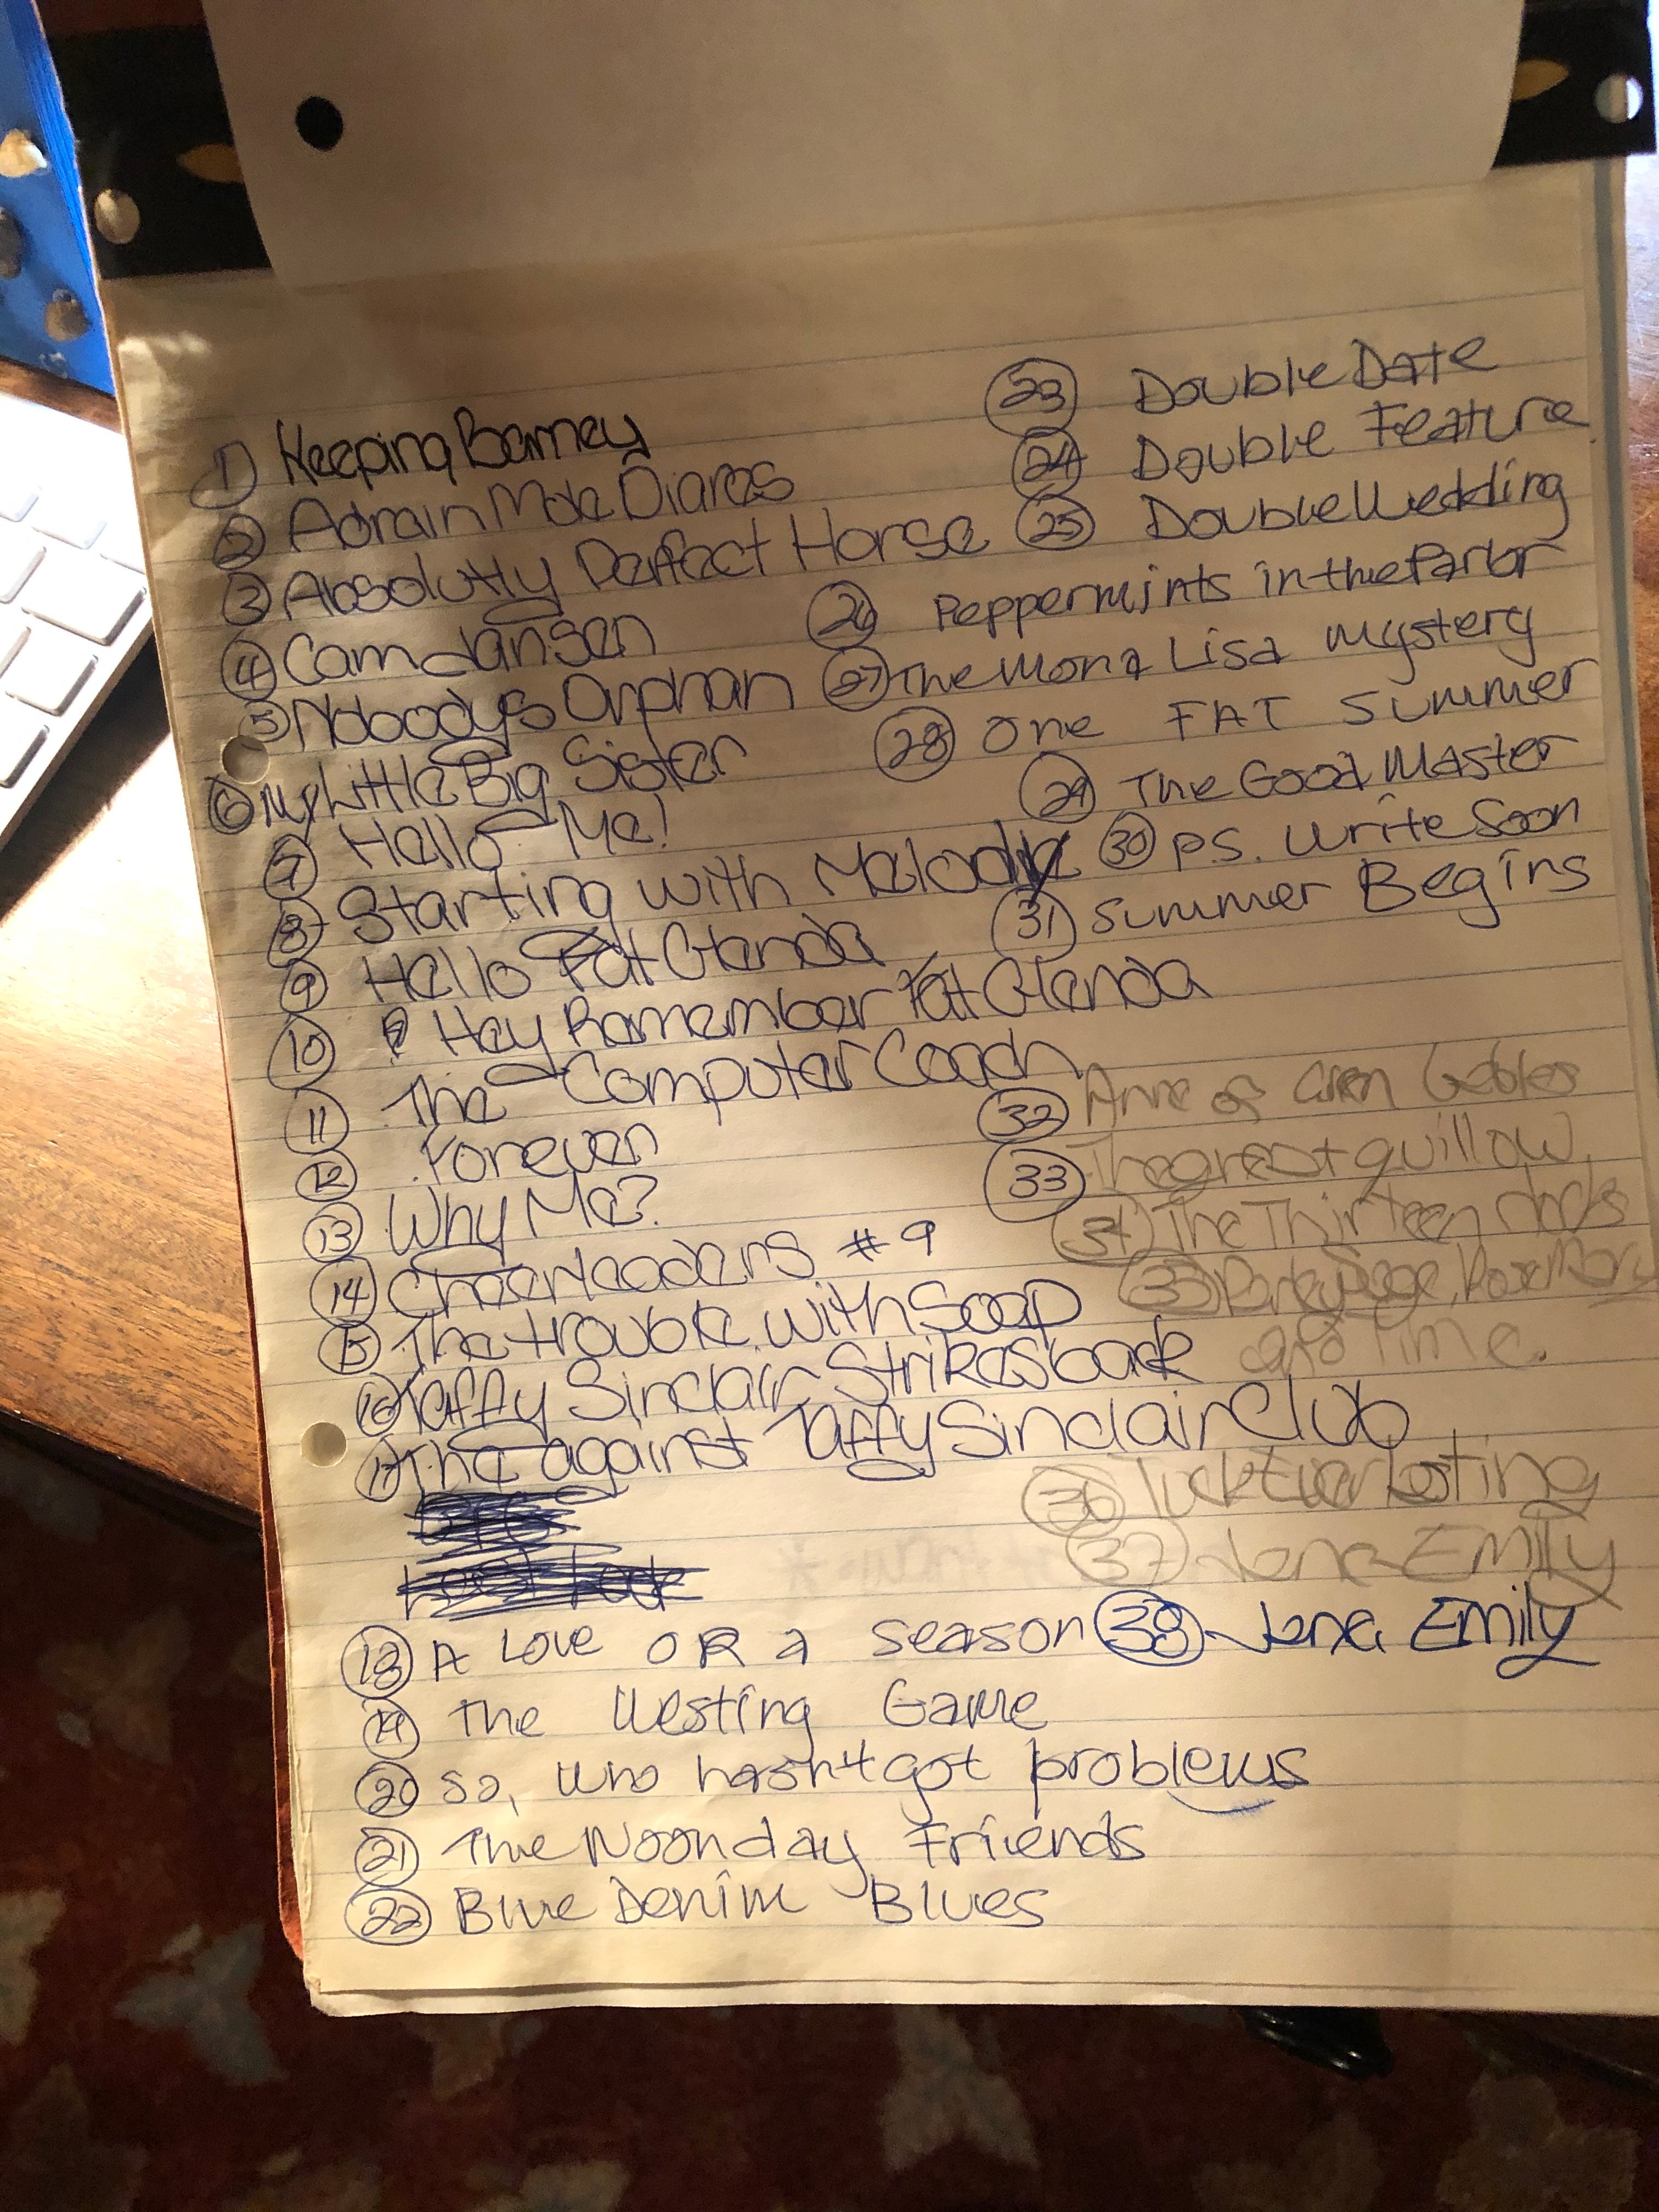 1 Keeping Barney
2 Adrain Mole Diares
3 Absolutly Perfect Horse
4 Cam Jansen
5 Nobodys Orphan
6 My Little Big Sister
7 Hello Me!
8 Starting with Melody
9 Hello Fat Glenda
10 Hey Remember Fat Glenda
11 The Computer Coach
12 Forever
13 Why Me?
14 Cheerleaders #9
15 The trouble with Soap
16 Taffy Sinclair Strikes back
17 The against Taffy Sinclair Club
18 A Love OR a season
19 The Westing Game
20 So, Who hasn't got problems
21 The Noonday Friends
22 Blue Denim Blues
23 Double Date
24 Double Feature
25 Double Wedding
26 Peppermints in the Parlor
27 The Mona Lisa mystery
28 One FAT Summer
29 The Good Master
30 P.S. Write Soon
31 Summer Begins
32 Anne of Green Gables
33 The great quillow
34 The Thirteen clocks
35 Rosemary
Time.
36 Tuck Everlasting
37 Jena Emily
38 Jena Emily